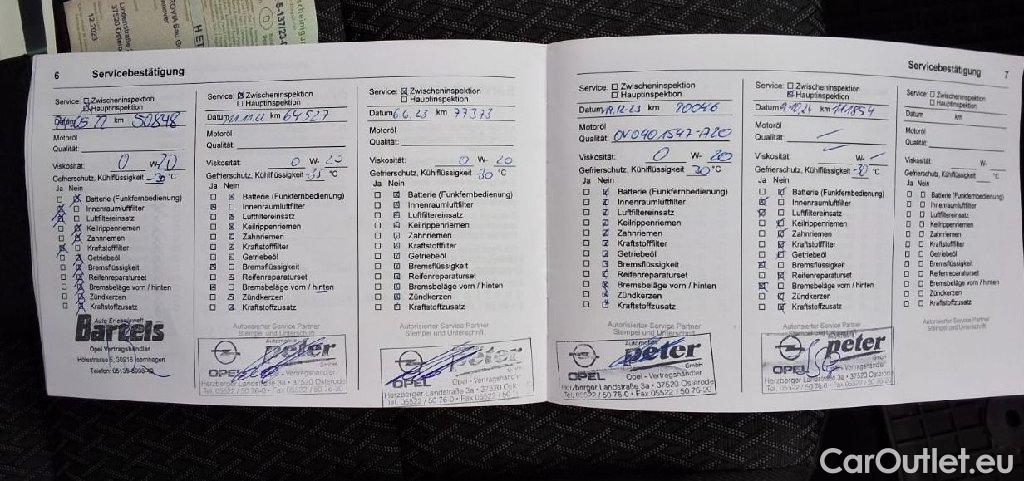 6 Servicebestätigung
Service: Zwischeninspektion
Hauptinspektion
Datum 05.22 km 50848
Motoröl
Qualität:
Viskosität: 0 W-20
Gefrierschutz, Kühlflüssigkeit -30 °C
Ja Nein
Batterie (Funkfernbedienung)
Innenraumluftfilter
Luftfiltereinsatz
Keilrippenriemen
Zahnriemen
Kraftstofffilter
Getriebeöl
Bremsflüssigkeit
Reifenreparaturset
Bremsbeläge vorn / hinten
Zündkerzen
Kraftstoffzusatz
Bartels
Opel Vertragshändler
Service: Zwischeninspektion
Hauptinspektion
Datum 11.22 km 64527
Motoröl
Qualität:
Viskosität: 0 W-20
Gefrierschutz, Kühlflüssigkeit -35 °C
Ja Nein
Batterie (Funkfernbedienung)
Innenraumluftfilter
Luftfiltereinsatz
Keilrippenriemen
Zahnriemen
Kraftstofffilter
Getriebeöl
Bremsflüssigkeit
Reifenreparaturset
Bremsbeläge vorn / hinten
Zündkerzen
Kraftstoffzusatz
Autorisierter Service Partner
Stempel und Unterschrift
peter
OPEL Opel - Vertragshändler
Herzberger Landstraße 3a · 37520 Osterode
Service: Zwischeninspektion
Hauptinspektion
Datum 6.6.23 km 77373
Motoröl
Qualität:
Viskosität: 0 W-20
Gefrierschutz, Kühlflüssigkeit -30 °C
Ja Nein
Batterie (Funkfernbedienung)
Innenraumluftfilter
Luftfiltereinsatz
Keilrippenriemen
Zahnriemen
Kraftstofffilter
Getriebeöl
Bremsflüssigkeit
Reifenreparaturset
Bremsbeläge vorn / hinten
Zündkerzen
Kraftstoffzusatz
Autorisierter Service Partner
Stempel und Unterschrift
peter
OPEL Opel - Vertragshändler
Servicebestätigung 7
Service: Zwischeninspektion
Hauptinspektion
Datum 19.12.23 km 90046
Motoröl
Qualität: OV0401547-A20
Viskosität: 0 W-20
Gefrierschutz, Kühlflüssigkeit -30 °C
Ja Nein
Batterie (Funkfernbedienung)
Innenraumluftfilter
Luftfiltereinsatz
Keilrippenriemen
Zahnriemen
Kraftstofffilter
Getriebeöl
Bremsflüssigkeit
Reifenreparaturset
Bremsbeläge vorn / hinten
Zündkerzen
Kraftstoffzusatz
Autorisierter Service Partner
Stempel und Unterschrift
peter
OPEL Opel - Vertragshändler
Herzberger Landstraße 3a · 37520 Osterode
Service: Zwischeninspektion
Hauptinspektion
Datum km 111854
Motoröl
Qualität:
Viskosität: W-
Gefrierschutz, Kühlflüssigkeit -30 °C
Ja Nein
Batterie (Funkfernbedienung)
Innenraumluftfilter
Luftfiltereinsatz
Keilrippenriemen
Zahnriemen
Kraftstofffilter
Getriebeöl
Bremsflüssigkeit
Reifenreparaturset
Bremsbeläge vorn / hinten
Zündkerzen
Kraftstoffzusatz
Autorisierter Service Partner
Stempel und Unterschrift
peter
OPEL Vertragshändler
Herzberger Landstraße 3a · 37520 Osterode
Service: Zwischeninspektion
Hauptinspektion
Datum km
Motoröl
Qualität:
Viskosität: W-
Gefrierschutz, Kühlflüssigkeit °C
Ja Nein
Batterie (Funkfernbedienung)
Innenraumluftfilter
Luftfiltereinsatz
Keilrippenriemen
Zahnriemen
Kraftstofffilter
Getriebeöl
Bremsflüssigkeit
Reifenreparaturset
Bremsbeläge vorn / hinten
Zündkerzen
Kraftstoffzusatz
Autorisierter Service Partner
Stempel und Unterschrift
CarOutlet.eu